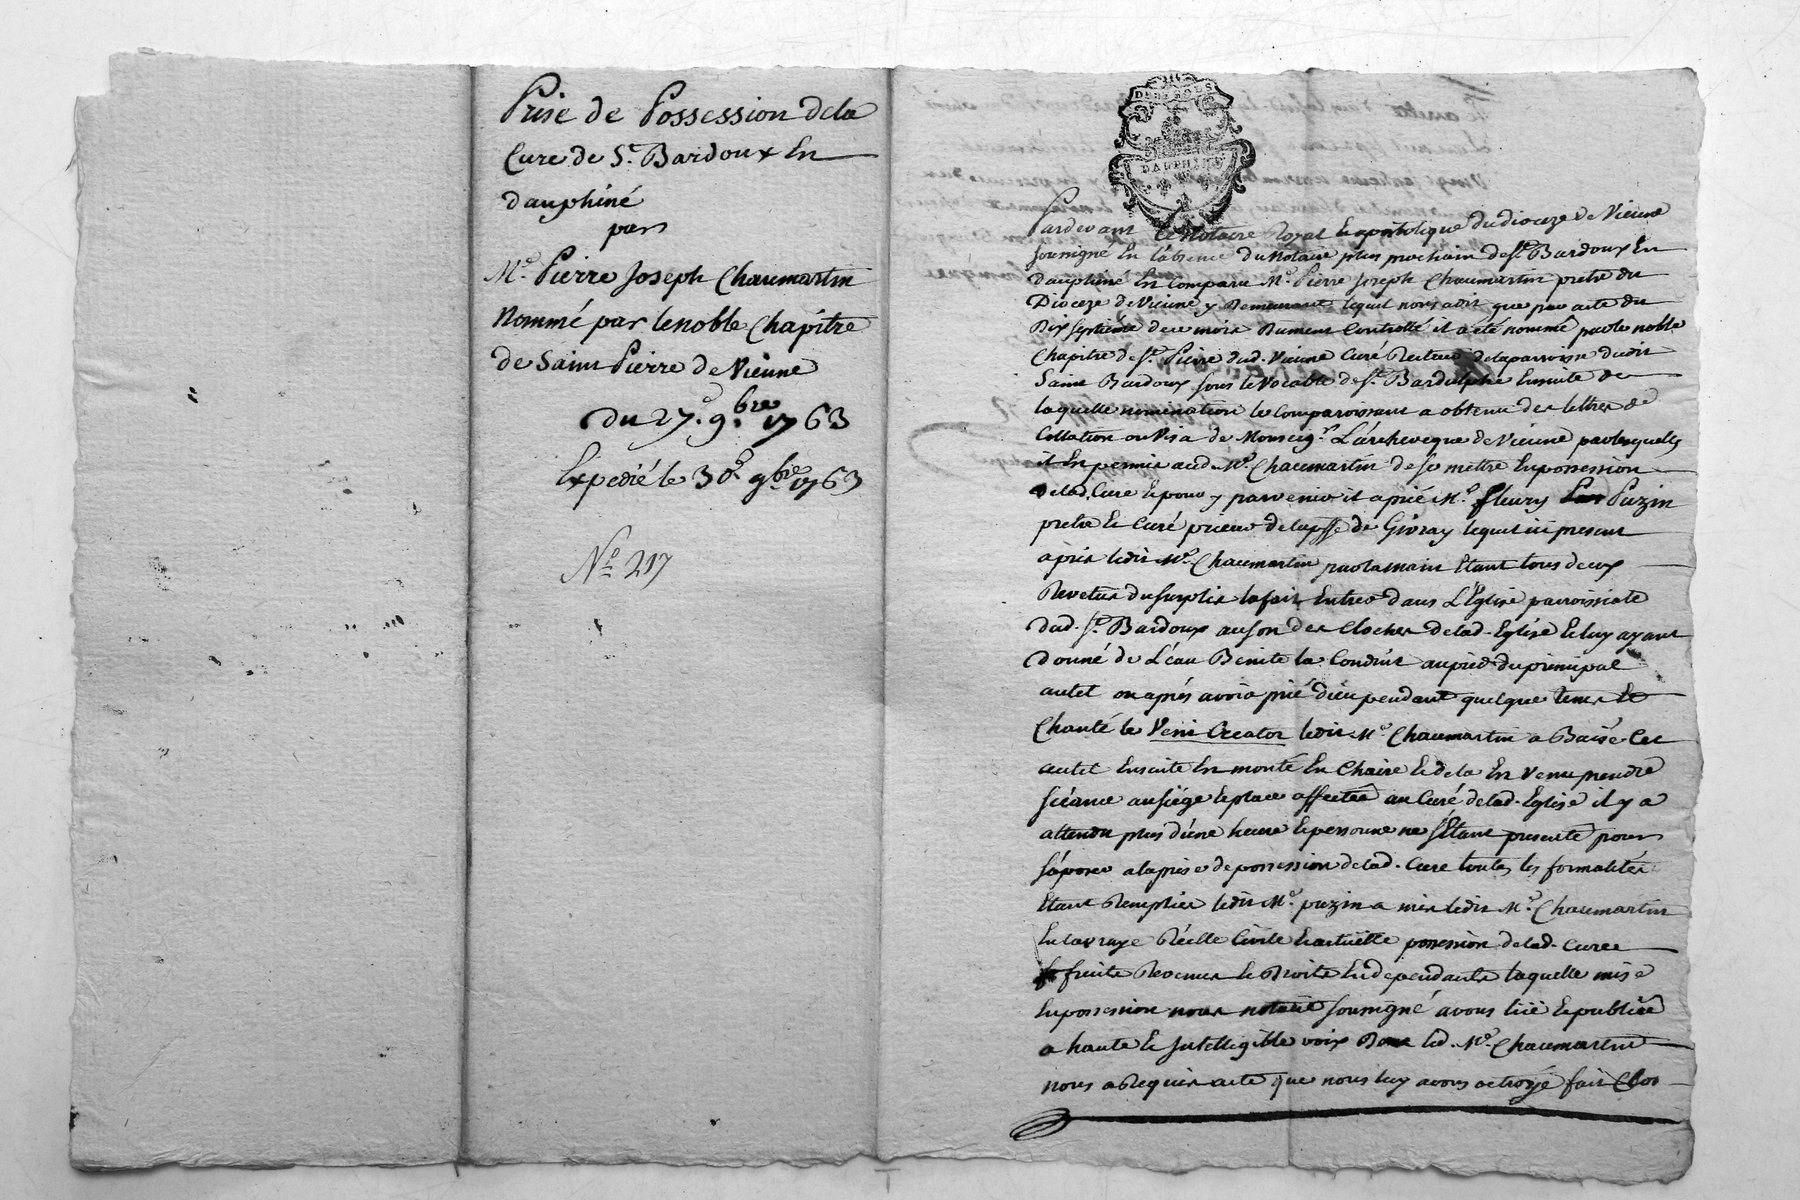 Prise de Possession dela
Cure de St. Bardoux En
dauphiné
par
Me. Pierre Joseph Chaumartin
Nommé par lenoble Chapitre
de Saint Pierre de Vienne
du 27e. 9bre. 1763
Expedié le 30e 9bre 1763
No 217
DAUPHINE
Pardevant Le Notaire Royal Et apostolique du dioceze de Vienne
soussigné En L'absence du Notaire plus prochain de St. Bardoux En
dauphiné Est Comparu Me. Pierre Joseph Chaumartin pretre du
Dioceze de Vienne y Demeurant lequel nous a dit que par acte du
Dix septieme de ce mois Dument Controllé il a eté nommé par le noble
Chapitre de St. Pierre dud. Vienne Curé Recteur dela parroisse dudit
Saint Bardoux sous le Vocable de St. Bardulphe Ensuite de
laquelle nomination le Comparoissant a obtenu des lettres de
Collation ou Visa de Monseigr. L'archeveque de Vienne par lesquelles
il Est permis aud. Me. Chaumartin de se mettre En possession
delad. Cure Et pour y parvenir il a prié Me. fleury Puzin
pretre Et Curé prieur de la psse de Givray lequel ici present
a pris ledit Me. Chaumartin par la main Etant tous deux
Revetus du surplis la fait Entrer dans L'Eglise parroissiale
dud. St. Bardoux au son des Cloches delad. Eglise Et luy ayant
donné de L'eau Benite la Conduit au pied du principal
autel ou aprés avoir prié dieu pendant quelque tems Et
Chanté le Veni Creator ledit Me. Chaumartin a Baisé Cet
autel Ensuite Est monté En Chaire Et de la Est Venu prendre
séance au siége Et place affectée au Curé delad. Eglise il y a
attendu plus d'une heure Et personne ne s'Etant presenté pour
s'oposer a la prise de possession delad. Cure toutes les formalités
Etant Remplies ledit Me. puzin a mis ledit Me. Chaumartin
En la vraye Réelle Civile Et actuelle possession delad. Cure
fruits Revenus Et Droits En dependants laquelle mise
En possession nous notaire soussigné avons lüe Et publiée
a haute Et Intelligible voix Dont led. Me. Chaumartin
nous a Requis acte que nous luy avons octroyé fait Clos